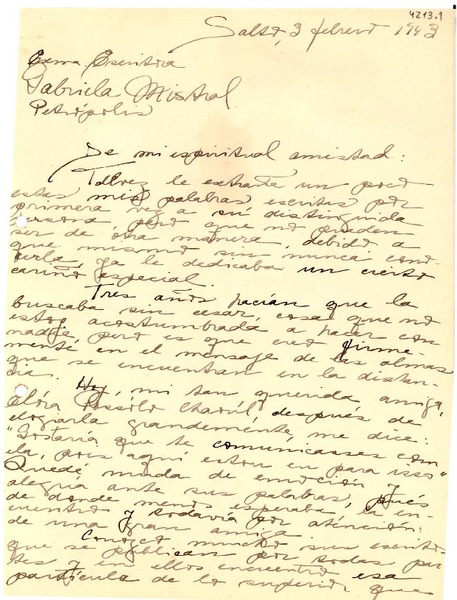 4213.1
Salto, 3 febrero 1943
Exma Escritora
Gabriela Mistral
Petrópolis
De mi espiritual amistad:
Talvez le extrañe un poco
estas mis palabras escritas por
primera vez a su distinguida
persona, pero que no pueden
ser de otra manera, debido a
que mismo sin nunca cono-
cerla, ya le dedicaba un cierto
cariño especial.
Tres años hacían que la
buscaba sin cesar, cosa que no
estoy acostumbrada a hacer con
nadie, pero es que creo firme
mente en el mensaje de las almas
que se encuentran en la distan-
cia.
Hoy, mi tan querida amiga,
después de
elogiarla grandemente, me dice:
"Gostaria que te comunicasses com
ela, pois aqui estou eu para isso"
Quedé muda de emoción y
alegría ante sus palabras, pués
de donde menos esperaba, la en-
cuentro y todavía por atención
de una gran amiga.
Conozco mucho sus escritos
que se publican por todas par-
tes y en ellos encuentro esa
partícula de lo superior que